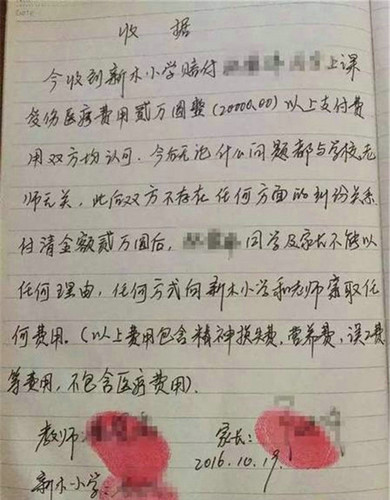 收据
今收到新木小学赔付上课
受伤医疗费用贰万圆整(20000.00)以上支付费
用双方均认可。今后无论什么问题都与学校、老
师无关,此后双方不存在任何方面的纠纷关系
付清金额贰万圆后,同学及家长不能以
任何理由,任何方式向新木小学和老师索取任
何费用。(以上费用包含精神损失费,营养费,误工费
等费用,不包含医疗费用).
教师: 家长:
2016.10.19.
新木小学: